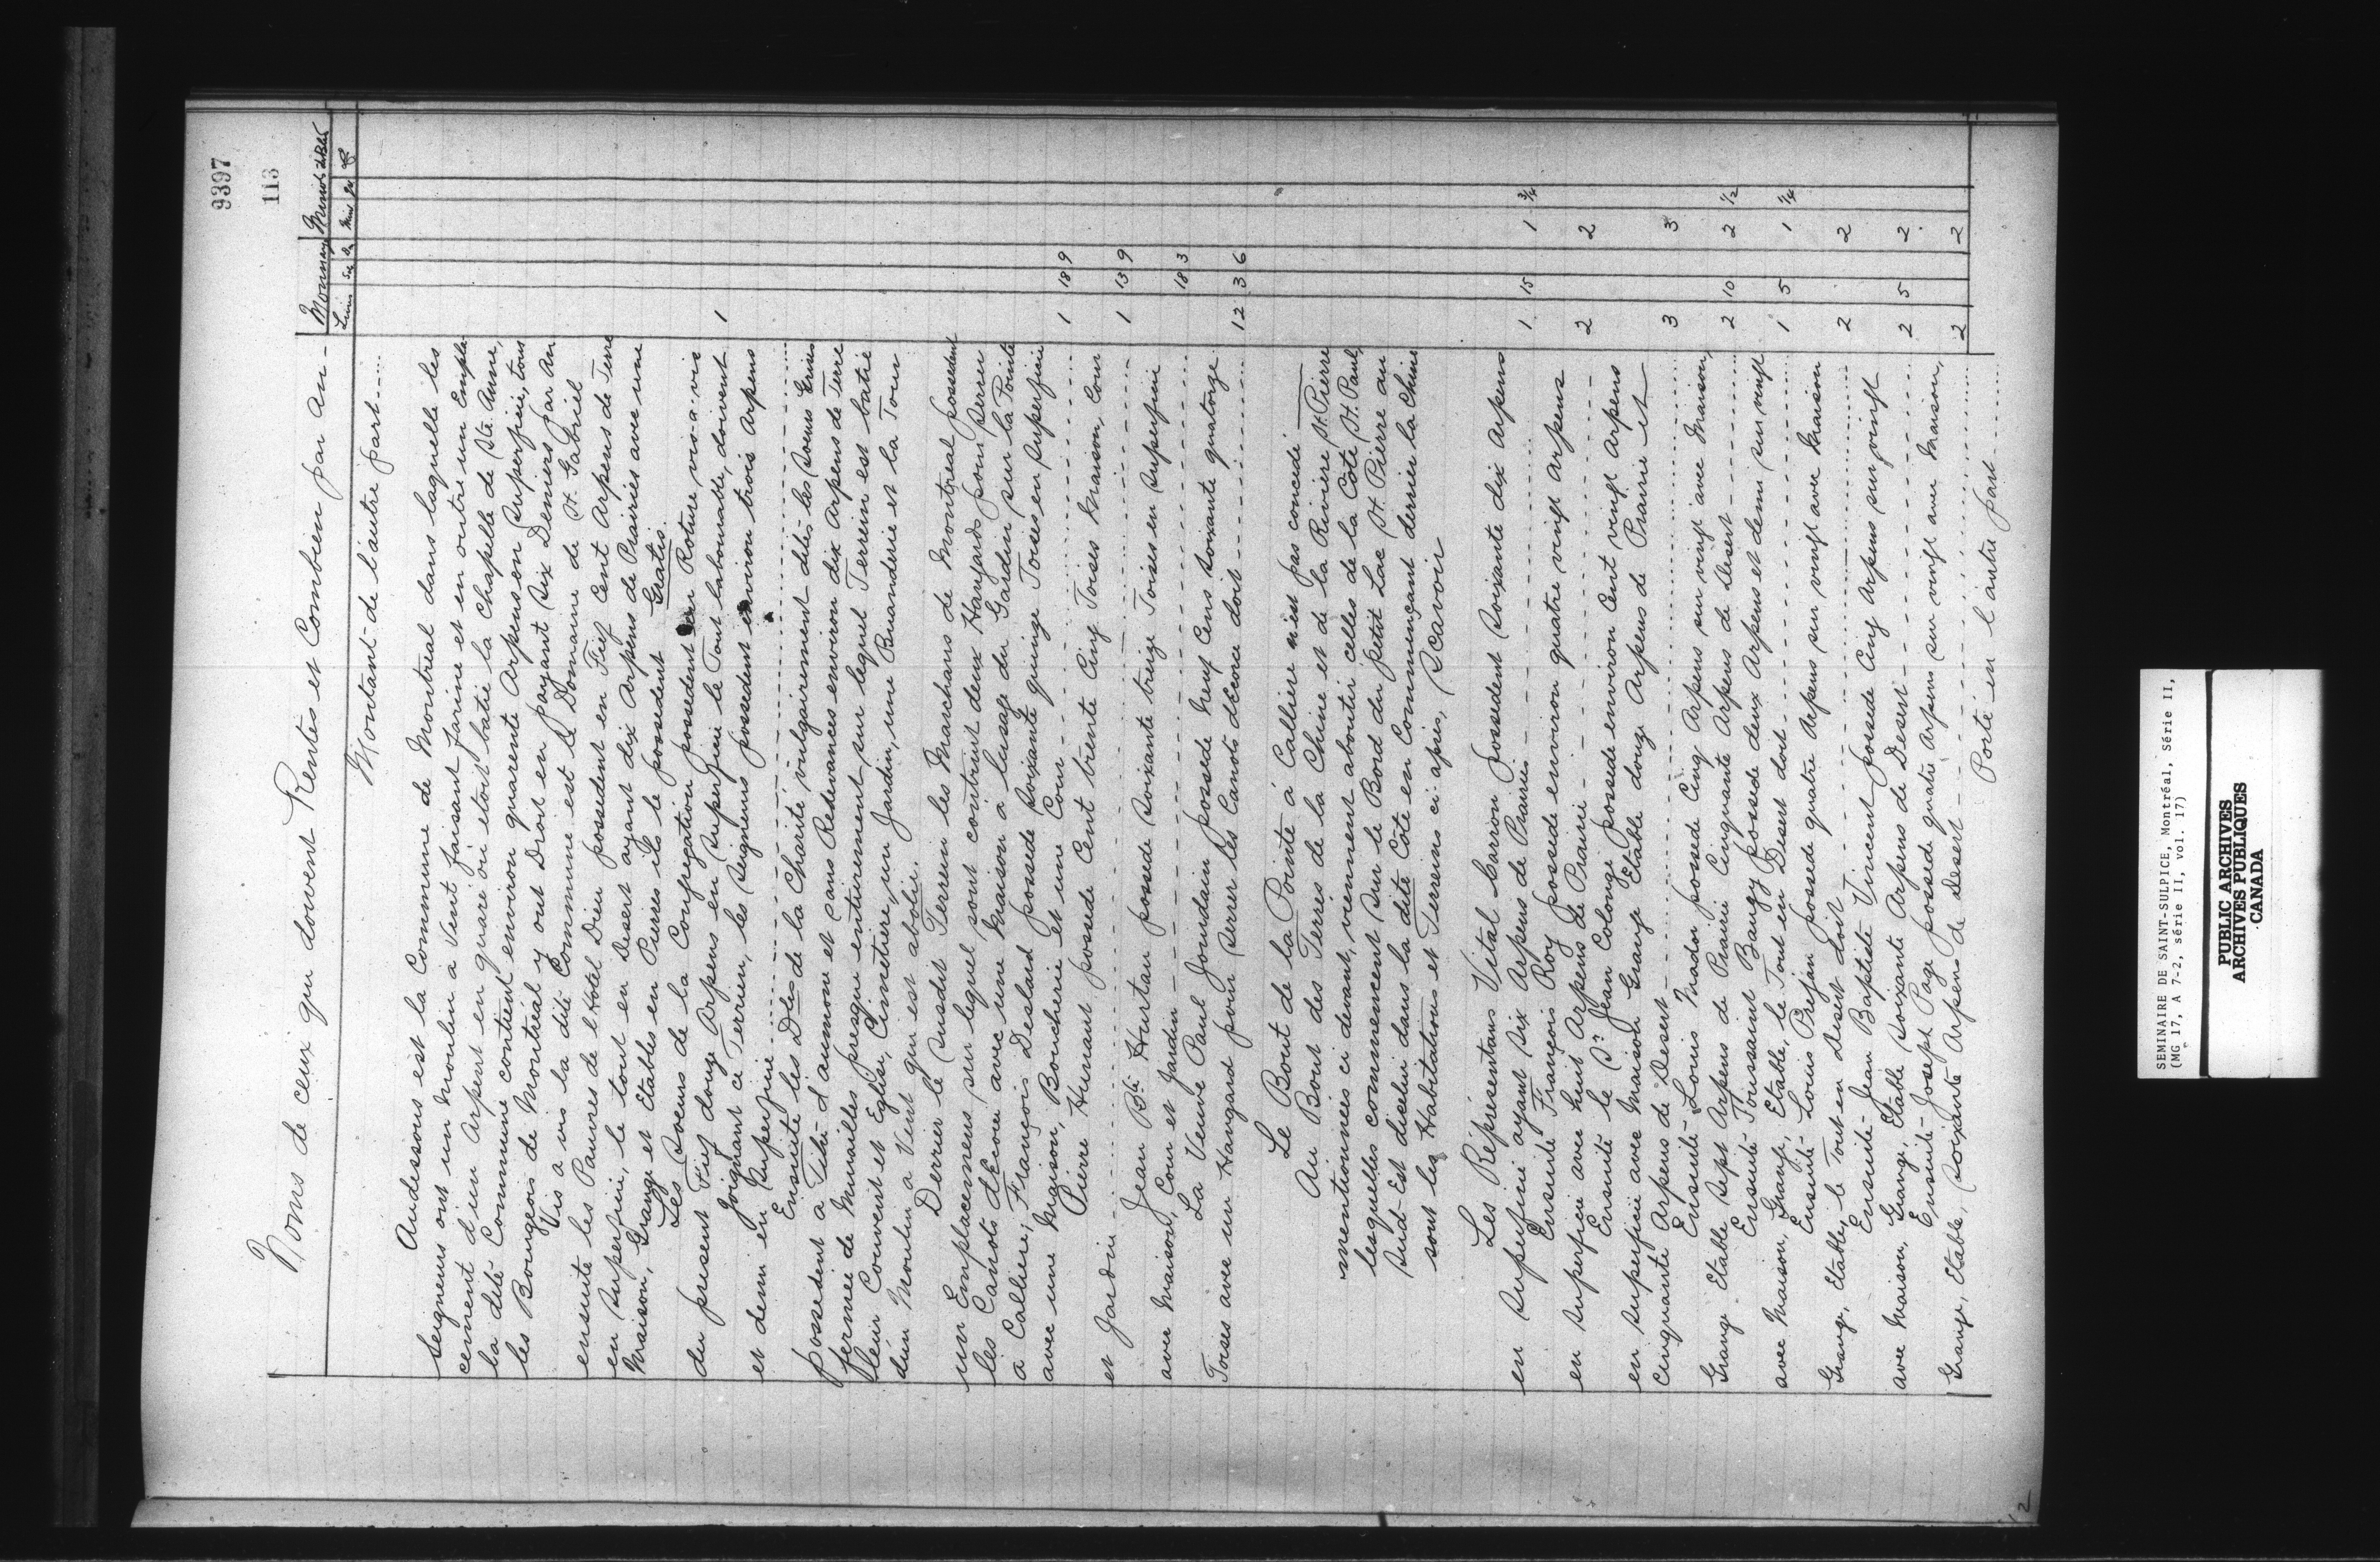 9397
113
Noms de ceux qui doivent Rentes et Combien par an -
Monnaye Minots de Bled
Livres Sls Ds Mins
Montant de l'autre part ....
Audessous est la Commune de Montréal dans laquelle les
Seigneurs ont un Moulin à Vent faisant farine et en outre un Empla-
cement d'un Arpent en quaré où étoit batie la Chapelle de Ste Anne,
la dite Commune contient environ quarente Arpens en Superficie, tous
les Bourgeois de Montréal y ont Droit en payant Six Deniers par An
Vis a vis la dite Commune est le Domaine de St. Gabriel
ensuite les Pauvres de l'Hotel Dieu possedent en Fief Cent Arpens de Terre
en Superficie, le tout en Desert ayant dix Arpens de Prairies avec une
Maison, Grange et Etables en Pierres ils le possedent Gratis.
Les Soeurs de la Congregation possedent en Roture vis-a-vis
du present Fief douze Arpens en Superficie le Tout labourable, doivent 1
Joignant ce Terrein, les Seigneurs possedent environ trois Arpens
et demi en Superficie ....
Ensuite les Dlles de la Charité vulgairement dites les Soeurs Grises
possedent a Titre d'aumone et sans Redevances environ dix Arpens de Terre
fermée de Murailles presque entierement sur lequel Terrein est batie
leur Couvent et Eglise, Cimetiere, un Jardin, une Buanderie et la Tour
d'un Moulin a Vent qui est abolie.
Derrier le susdit Terrein les Marchans de Montreal possedent
un Emplacement sur lequel sont contruit deux Hangards pour serrer
les Canots d'Ecorce avec une Maison a l'usage du Gardien sur la Pointe
a Calliere; François Deslard possede Soixante quinze Toises en Superficie
avec une Maison, Boucherie et une Cour - 1 18 9
Pierre Hunaut possede Cent trente Cinq Toises Maison, Cour
et Jardin - 1 13 9
Jean Bte Hurtau possede Soixante treize Toises en Superficie
avec Maison, Cour et Jardin - 18 3
La Veuve Paul Jourdain possede neuf Cens Soixante quatorze
Toises avec un Hangard pour serrer les Canots d'Ecorce doit 12 3 6
Le Bout de la Pointe á Calliere n'est pas concedé
Au Bout des Terres de la Chine et de la Riviere St. Pierre
mentionnées ci devant, viennent aboutir celles de la Côte St. Paul,
lesquelles commencent sur le Bord du petit Lac St. Pierre au
Sud-Est d'icelui dans la dite Côte en Commençant derrier la Chine
sont les Habitations et Terreins ci-après, Scavoir
Les Réprésentans Vital Carron possedent Soixante dix Arpens
en Superficie ayant Six Arpens de Prairies - 1 15 1 3/4
Ensuite François Roy possede environ quatre vingt Arpens
en Superficie avec huit Arpens de Prairie - 2 2
Ensuite le Sr Jean Colonge possede environ Cent vingt Arpens
en Superficie avec Maison Grange Etable douze Arpens de Prairie et
Cinquante Arpens de Desert - 3 3
Ensuite Louis Mador possede Cinq Arpens sur vingt avec Maison,
Grange Etable Sept Arpens de Prairie Cinquante Arpens de Désert 2 10 2 1/2
Ensuite Toussaint Bangy possede deux Arpens et demi sur vingt
avec Maison, Grange, Etable, le Tout en Desert doit 1 5 1 1/4
Ensuite Louis Prejan possede quatre Arpens sur vingt avec Maison
Grange, Etable, le Tout en Desert doit 2 2
Ensuite Jean Baptiste Vincent possede Cinq Arpens sur vingt
avec Maison, Grange, Etable Soixante Arpens de Desert - 2 5 2
Ensuite Joseph Page possede quatre Arpens sur vingt avec Maison,
Grange, Etable, Soixante Arpens de Desert - 2 2
Porté en l'autre part
12
SEMINAIRE DE SAINT-SULPICE, Montréal, Série II,
(MG 17, A 7-2, série II, vol. 17)
PUBLIC ARCHIVES
ARCHIVES PUBLIQUES
CANADA